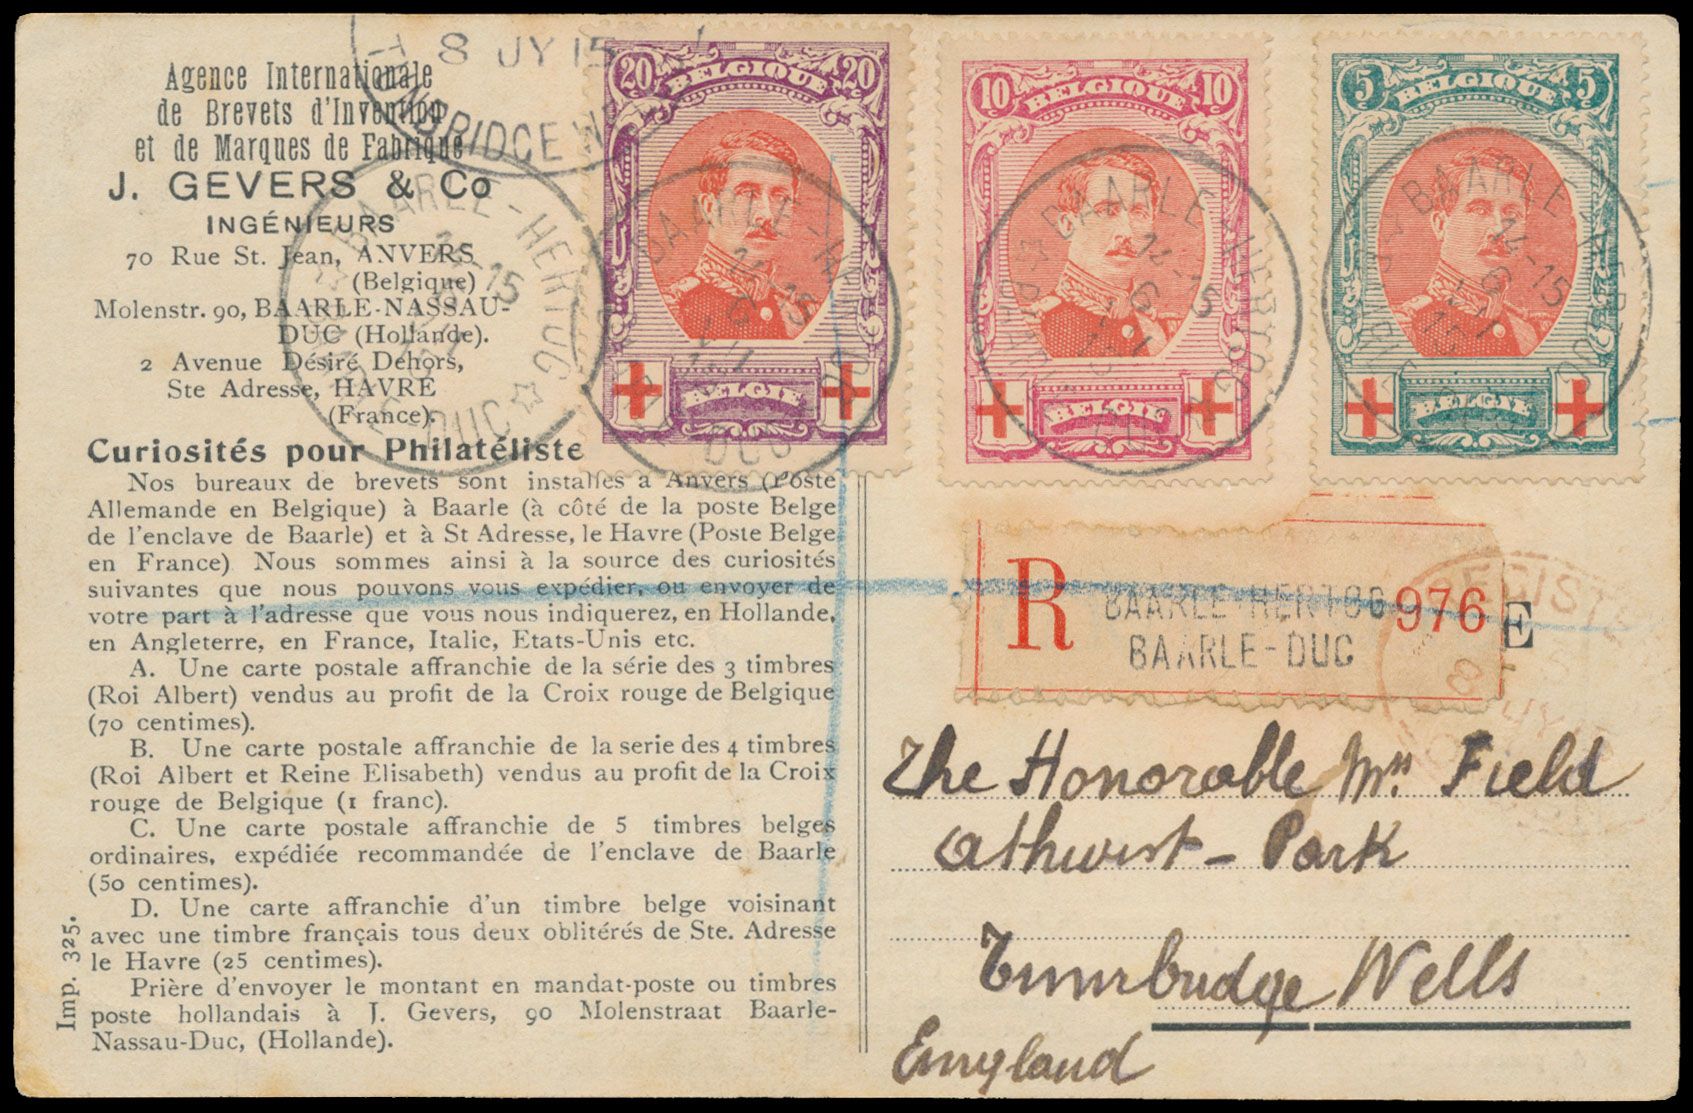 Agence Internationale
de Brevets d'Invention
et de Marques de Fabrique
J. GEVERS & Co
INGÉNIEURS
70 Rue St. Jean, ANVERS
(Belgique)
Molenstr. 90, BAARLE-NASSAU-
DUC (Hollande).
2 Avenue Désiré Dehors,
Ste Adresse, HAVRE
(France).
Curiosités pour Philatéliste
Nos bureaux de brevets sont installés a Anvers (Poste
Allemande en Belgique) à Baarle (à côté de la poste Belge
de l'enclave de Baarle) et à St Adresse, le Havre (Poste Belge
en France) Nous sommes ainsi à la source des curiosités
suivantes que nous pouvons vous expédier, ou envoyer de
votre part à l'adresse que vous nous indiquerez, en Hollande,
en Angleterre, en France, Italie, Etats-Unis etc.
A. Une carte postale affranchie de la série des 3 timbres
(Roi Albert) vendus au profit de la Croix rouge de Belgique
(70 centimes).
B. Une carte postale affranchie de la serie des 4 timbres
(Roi Albert et Reine Elisabeth) vendus au profit de la Croix
rouge de Belgique (1 franc).
C. Une carte postale affranchie de 5 timbres belges
ordinaires, expédiée recommandée de l'enclave de Baarle
(50 centimes).
D. Une carte affranchie d'un timbre belge voisinant
avec une timbre français tous deux oblitérés de Ste. Adresse
le Havre (25 centimes).
Prière d'envoyer le montant en mandat-poste ou timbres
poste hollandais à J. Gevers, 90 Molenstraat Baarle-
Nassau-Duc, (Hollande).
Imp. 325.
8 JY 15
TUNBRIDGE WE
BAARLE-HERTOG
14-15
BAARLE DUC
20 BELGIQUE 20
BELGIË
BAARLE-HERTOG
14-15
6
VII
BAARLE DUC
10 BELGIQUE 10
BELGIË
BAARLE-HERTOG
14-15
6
VII
15
BAARLE DUC
5 BELGIQUE 5
BELGIË
BAARLE-HERTOG
14-15
6
VII
15
BAARLE DUC
R BAARLE-HERTOG 976 E
BAARLE-DUC
8 JY 15
The Honorable Mrs Field
Athurst-Park
Tunnbudge Wells
Enngland